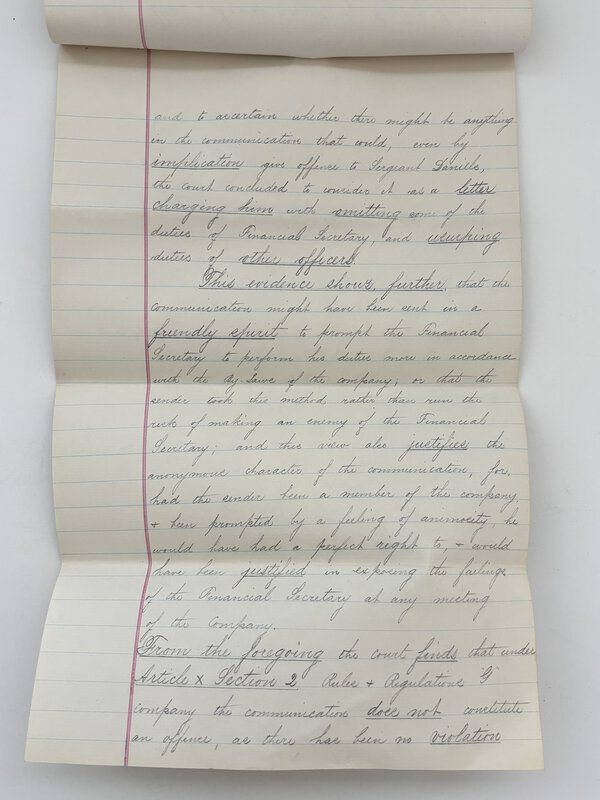 and to ascertain whether there might be anything
in the communication that could, even by
implication give offence to Sergeant Daniels,
the court concluded to consider it as a letter
charging him with omitting some of the
duties of Financial Secretary, and usurping
duties of other officers.
This evidence shows, further, that the
communication might have been sent in a
friendly spirit to prompt the Financial
Secretary to perform his duties more in accordance
with the By-Laws of the company; or that the
sender took this method rather than run the
risk of making an enemy of the Financial
Secretary; and this view also justifies the
anonymous character of the communication, for,
had the sender been a member of the company,
+ been prompted by a feeling of animosity, he
would have had a perfect right to, + would
have been justified in exposing the failings
of the Financial Secretary at any meeting
of the Company.
From the foregoing the court finds that under
Article X Section 2 Rules + Regulations "G"
company the communication does not constitute
an offence, as there has been no violation